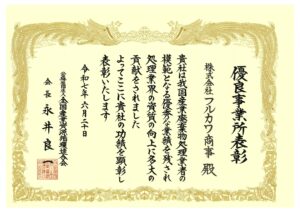 優良事業所表彰
株式会社フルカワ商事 殿
貴社は我国産業廃棄物処理業者の
模範となる優秀な業績を残され
処理業界の資質の向上に多大の
貢献をされました
よってここに貴社の功績を顕彰し
表彰いたします
令和七年六月二十日
公益社団法人全国産業資源循環連合会
会長 永井良一